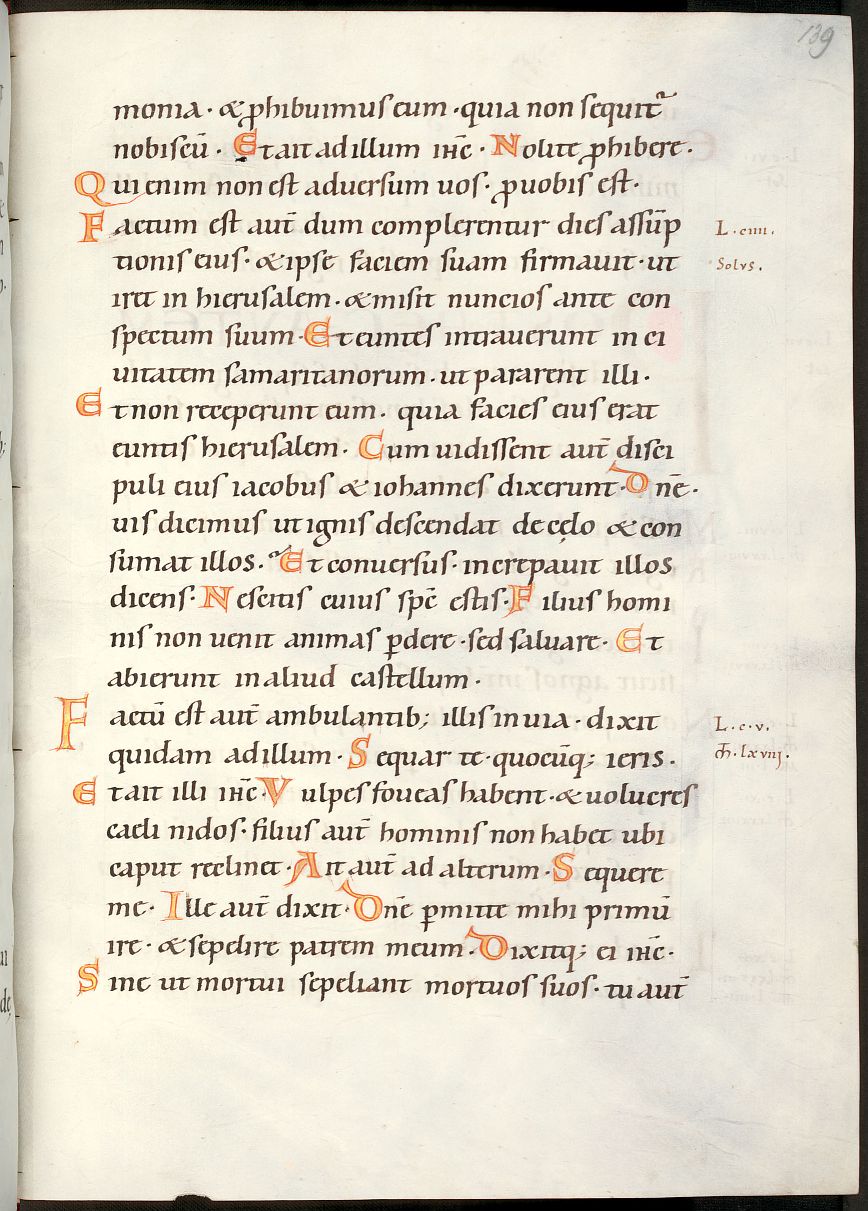 139
monia · & ꝓhibuimus eum · quia non sequit᷑
nobiscū · Et ait ad illum ihc̄ · Nolite ꝓhibere ·
Qui enim non est adversum uos · ꝓ uobis est ·
Factum est aut̄ dum complerentur dies assūp
L · ciiii ·
tionis eius · & ipse faciem suam firmavit · ut
Solus .
iret in hierusalem · & misit nuncios ante con
spectum suum · Et euntes intraverunt in ci
uitatem samaritanorum · ut pararent illi ·
Et non receperunt eum · quia facies eius erat
euntis hierusalem · Cum uidissent aut̄ disci
puli eius iacobus & iohannes dixerunt · Dnē ·
uis dicimus ut ignis descendat de cęlo & con
sumat illos · Et conuersus · increpauit illos
dicens · Nescitis cuius sp̄c estis · Filius homi
nis non uenit animas ꝑdere · sed saluare · Et
abierunt in aliud castellum ·
Factū est aut̄ ambulantib; illis in uia · dixit
L · c · v .
quidam ad illum · Sequar te · quocūq; ieris ·
M̄ · lxvııj .
Et ait illi ihc̄ · Vulpes foueas habent · & uolucres
caeli nidos · filius aut̄ hominis non habet ubi
caput reclinet · Ait aut̄ ad alterum · Sequere
me · Ille aut̄ dixit · Dnē ꝑmitte mihi primū
ire · & sepelire patrem meum · Dixitq; ei ihc̄ ·
Sine ut mortui sepeliant mortuos suos · tu aut̄